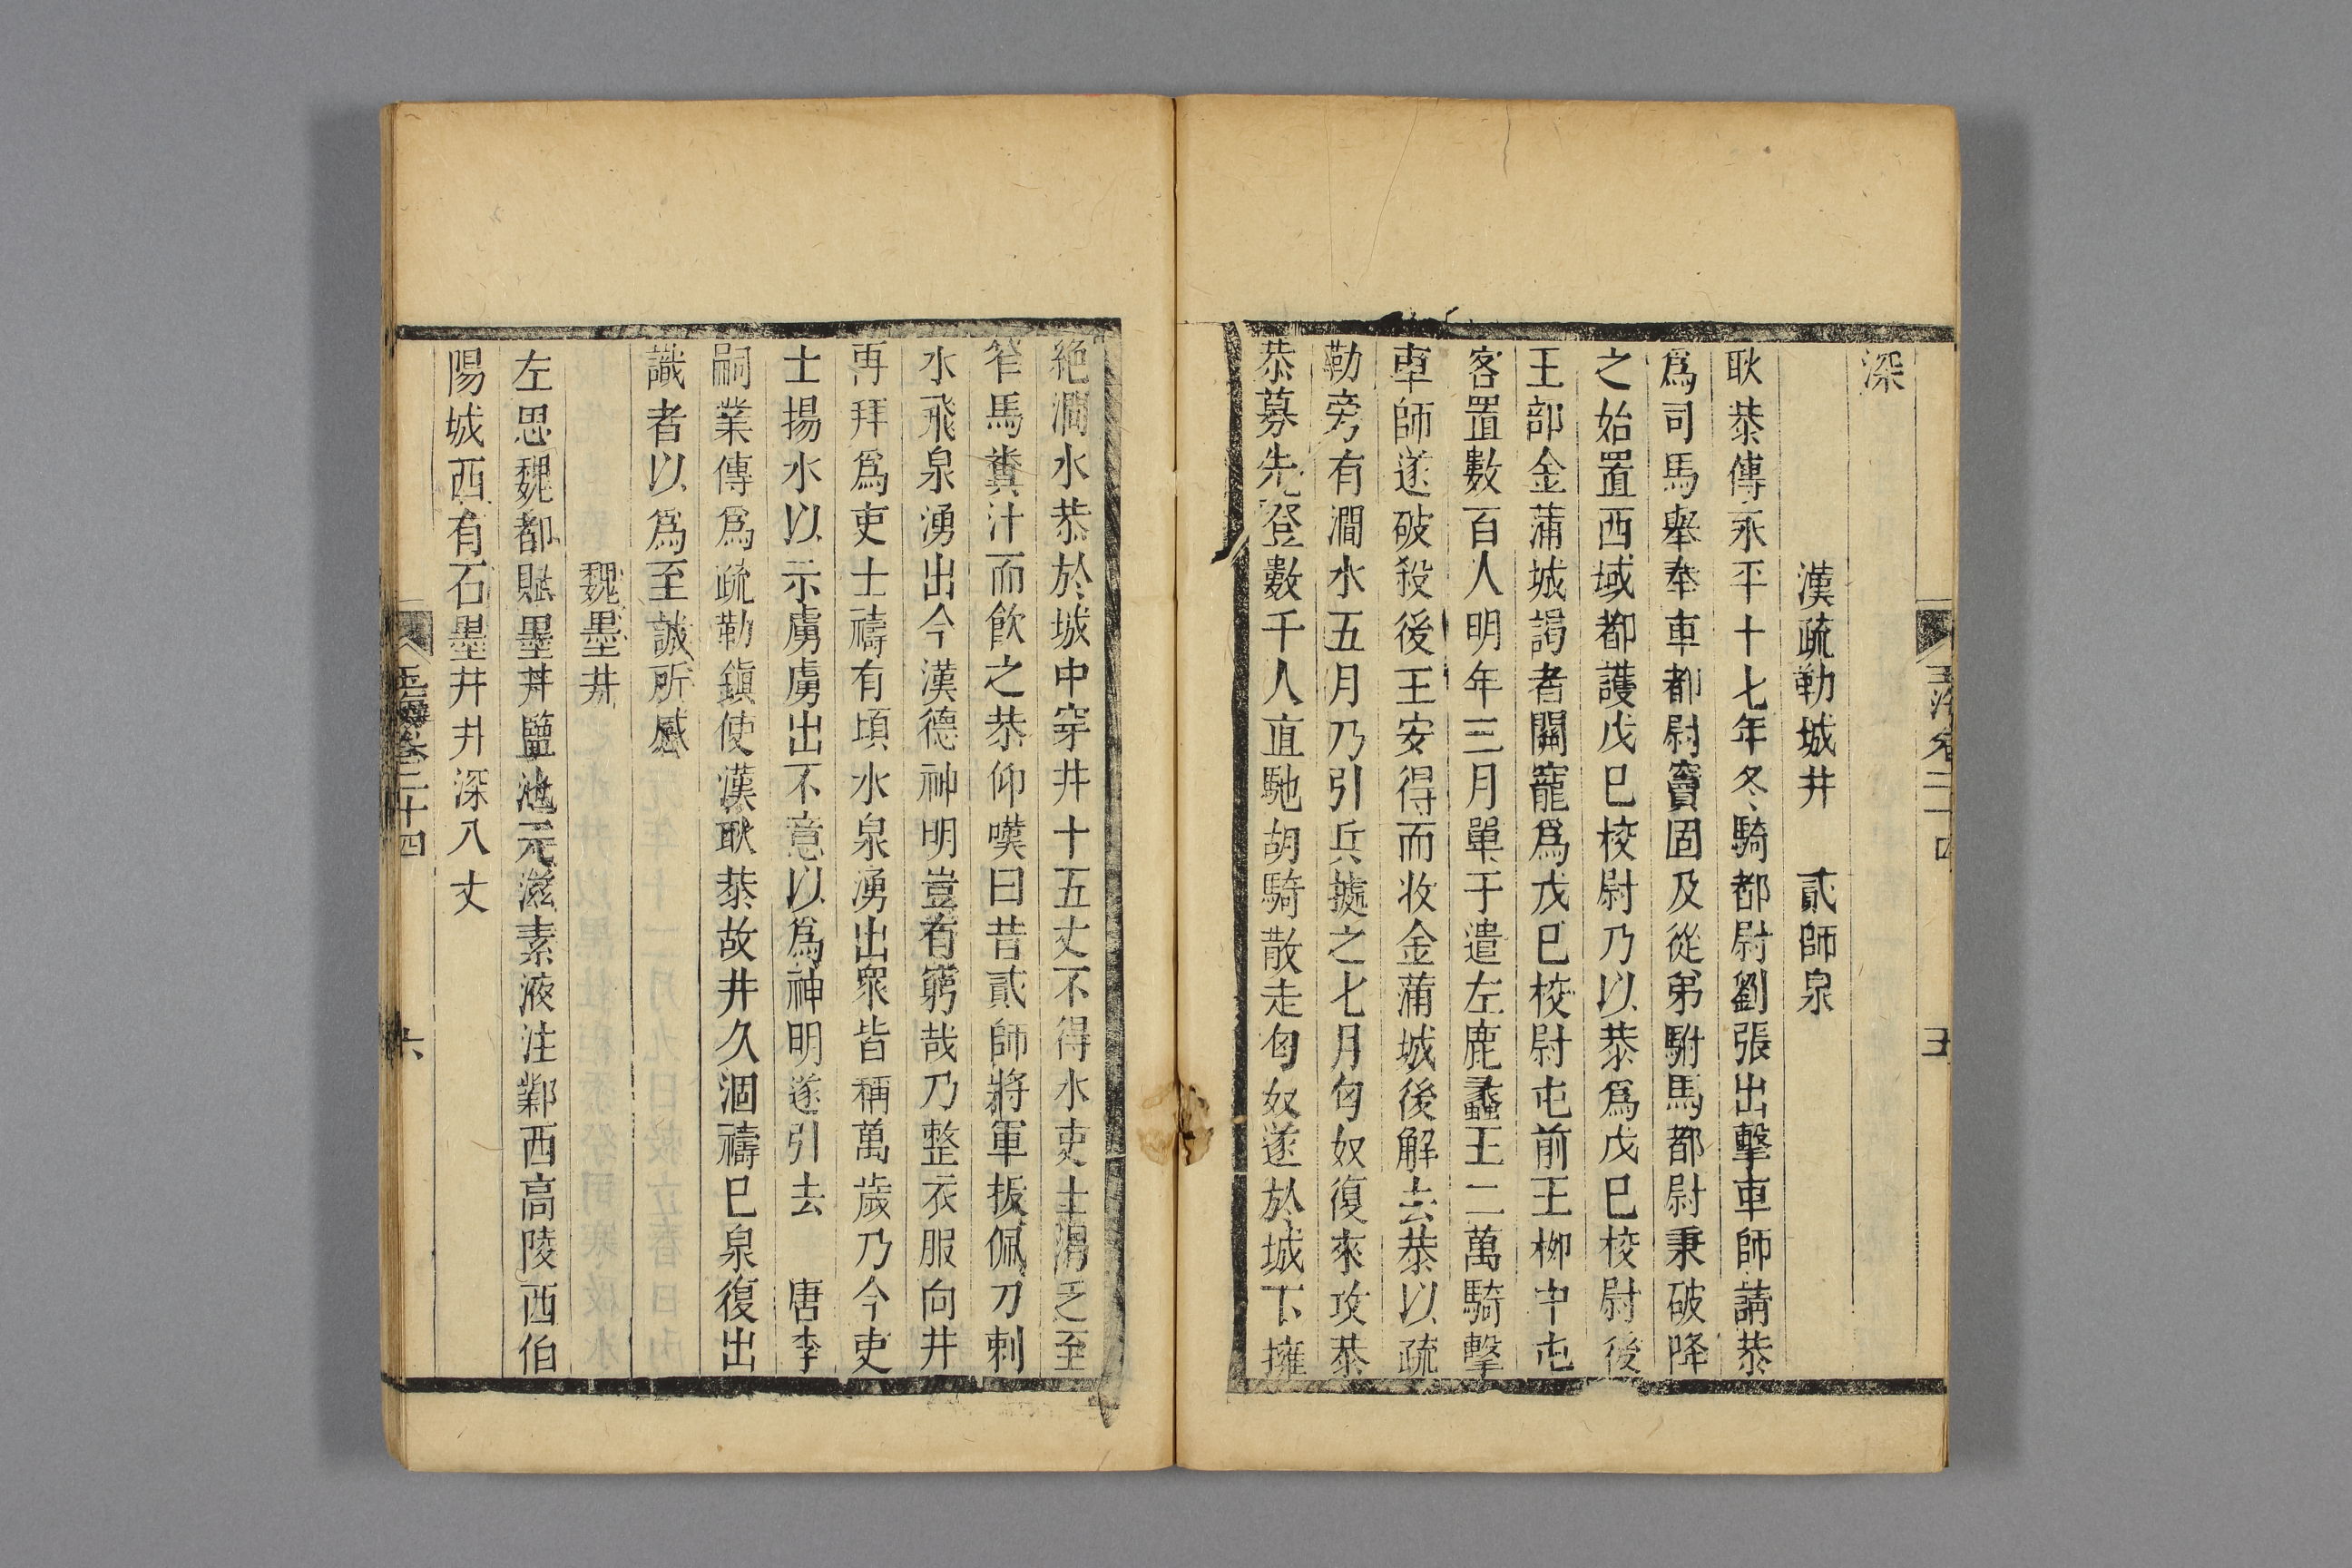 深
漢疏勒城井　貳師泉
耿恭傳永平十七年冬騎都尉劉張出擊車師請恭
爲司馬與奉車都尉竇固及從弟駙馬都尉秉破降
之始置西域都護戊巳校尉乃以恭爲戊巳校尉後
王部金蒲城謁者關寵爲戊巳校尉屯前王柳中屯
客置數百人明年三月單于遣左鹿蠡王二萬騎擊
車師遂破殺後王安得而收金蒲城後解去恭以疏
勒旁有澗水五月乃引兵據之七月匈奴復來攻恭
恭募先登數千人直馳胡騎散走匈奴遂於城下擁
絶澗水恭於城中穿井十五丈不得水吏士渴乏至
笮馬糞汁而飮之恭仰嘆曰昔貳師將軍拔佩刀刺
水飛泉湧出今漢德神明豈有窮哉乃整衣服向井
再拜爲吏士禱有頃水泉湧出衆皆稱萬歲乃令吏
士揚水以示虜虜出不意以爲神明遂引去　唐李
嗣業傳爲疏勒鎭使漢耿恭故井久涸禱巳泉復出
識者以爲至誠所感
魏墨井
左思魏都賦墨井鹽池元滋素液注鄴西高陵西伯
陽城西有石墨井井深八丈
玉海卷二十四
六
玉海卷二十四
五